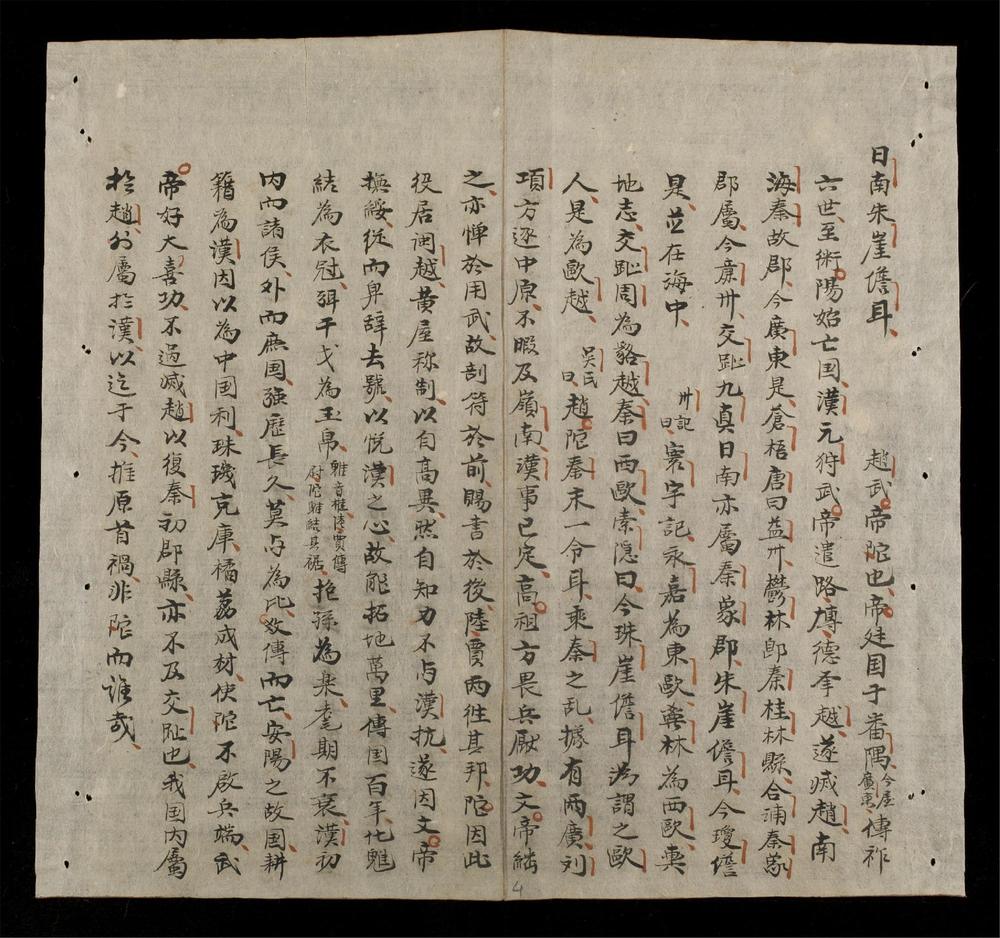 日南朱崖儋耳　趙武帝陀也帝廷国于番隅今屬廣東傳祚
六世至術陽始亡国漢元狩武帝遣路博德李越遂滅趙南
海秦故郡今廣東是蒼梧唐曰益州欝林郎秦桂林縣合浦秦象
郡屬今廉州交趾九真日南亦屬秦象郡朱崖儋耳今瓊儋
是並在海中　州記曰寰宇記永嘉為東歐欝林為西歐輿
地志交趾周為駱越秦曰西歐索隱曰今珠崖儋耳為謂之歐
人是為歐越　吳氏曰趙陀秦末一令耳乘秦之乱據有兩廣刘
項方逐中原不暇及嶺南漢事已定高祖方畏兵厭功文帝継
之亦憚於用武故剖符於前賜書於後陸賈兩往其邦陀因此
役居閩越黄屋称制以自高異然自知力不与漢抗遂因文帝
撫綏從而卑辞去號以悦漢之心故能拓地萬里傳国百年化魋
結為衣冠弭干戈為玉帛魋音椎陸賈傳尉陀魋結其裾抱孫為楽耄期不衰漢初
内而諸侯外而庶国強歷長久莫与為比效傳而亡安陽之故国耕
籍為漢因以為中国利珠璣克庫橘荔成材使陀不啟兵端武
帝好大喜功不過滅趙以復秦初郡縣亦不及交趾也我国内屬
於趙於屬於漢以迄于今推原首禍非陀而誰哉
4